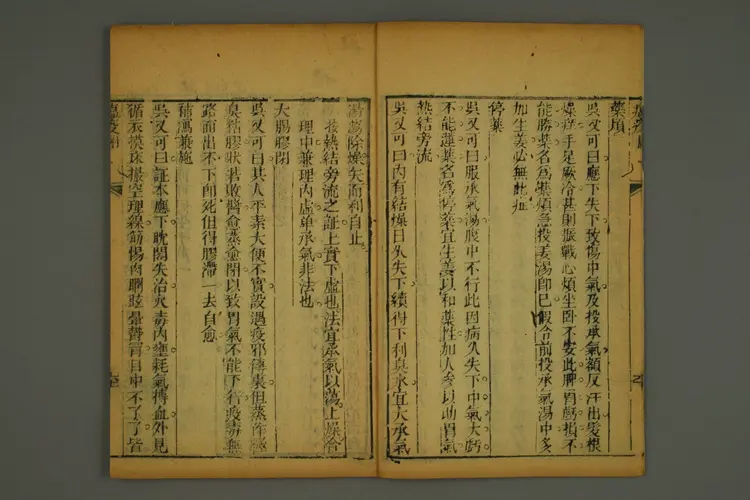 藥煩
吳又可曰應下失下致傷中氣及投承氣額反汗出髮根
燥痒手足厥冷甚則振戰心煩坐臥不安此脾胃虧損不
能勝藥名為藥煩急投姜湯即已假令前投承氣湯中多
加生姜必無此狂
停藥
吳又可曰服承氣湯腹中不行此因病久失下中氣大虧
不能運藥名為停藥宜生姜以和藥性加人參以助胃氣
熱結旁流
吳又可曰內有結燥日久失下續得下利臭水宜大承氣
湯蕩除燥矢而利自止
按熱結旁流之証上實下虛也法宜承氣以蕩上燥合
理中兼理內虛單承氣非法也
大腸膠閉
吳又可曰其人平素大便不實設遇疫邪傳裏但蒸作極
臭粘膠狀若敗醬愈蒸愈閉以致胃氣不能下行疫毒無
路而出不下即死但得膠滯一去自愈
補瀉兼施
吳又可曰証本應下耽閣失治火毒內壅耗氣搏血外見
循衣摸床撮空理線筋惕肉瞤眩暈鬱冒目中不了了皆